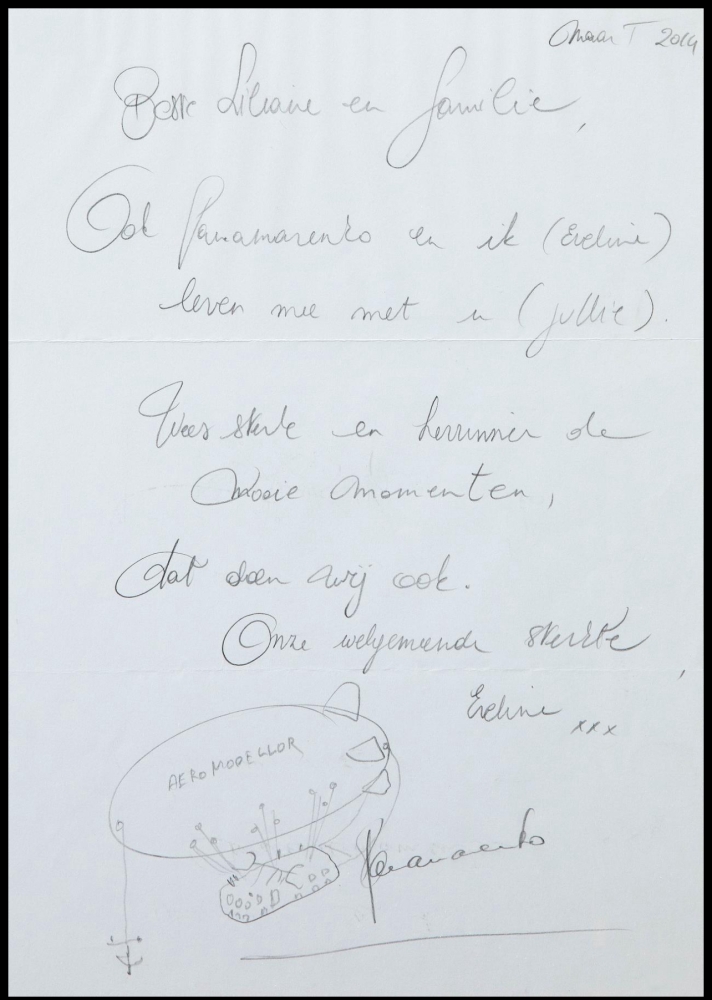 Maart 2014
Beste Liliane en familie,
Ook Panamarenko en ik (Eveline)
leven mee met u (jullie).
Wees sterk en herinner de
mooie momenten,
dat doen wij ook.
Onze welgemeende sterkte,
Eveline xxx
AEROMODELLOR
Panamarenko